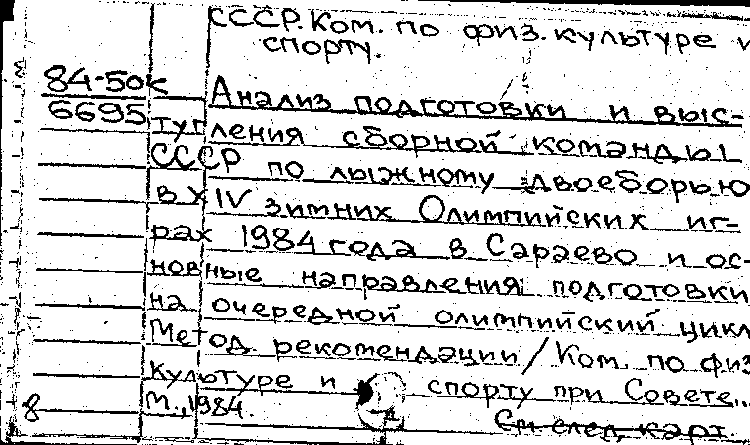 СССР. Ком. по физ. культуре и
спорту.
84-50к
6695
Анализ подготовки и выс-
тупления сборной команды
СССР по лыжному двоеборью
в XIV зимних Олимпийских иг-
рах 1984 года в Сараево и ос-
новные направления подготовки
на очередной олимпийский цикл
Метод. рекомендации/Ком. по физ
культуре и спорту при Совете...
М., 1984.
8
См след. карт.